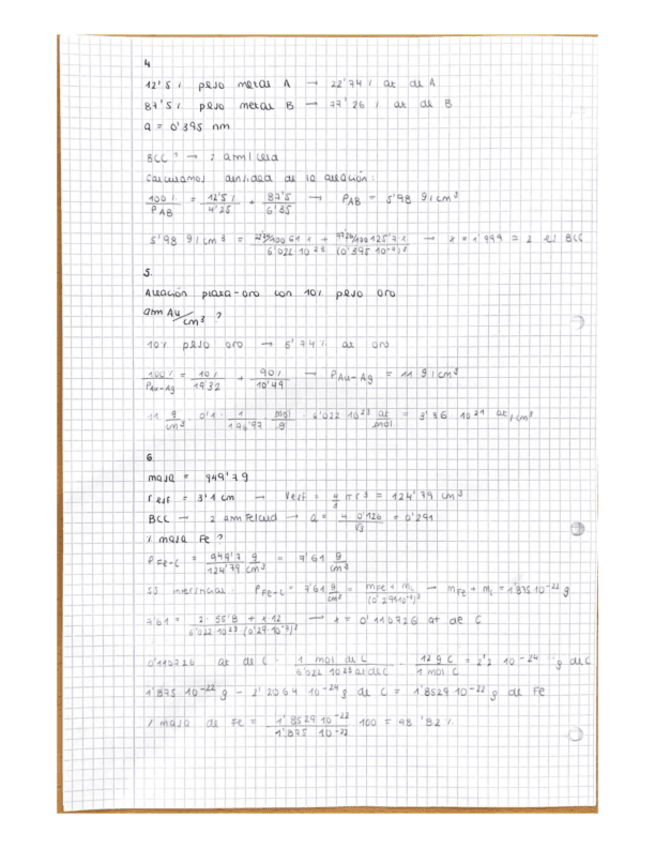 4
12'5 % peso metal A → 22'74 % at de A
87'5 % peso metal B → 77'26 % at de B
a = 0'395 nm
BCC ? → 2 atm/celda
Calculamos densidad de la aleación:
100 % / ρAB = 12'5 % / 4'25 + 87'5 / 6'35 → ρAB = 5'98 g/cm³
5'98 g/cm³ = 22'74/100 61 x + 77'26/100 125'7 x / 6'022·10²³ (0'395 10⁻⁷)³ → x = 1'999 = 2 es BCC
5.
Aleación plata-oro con 10% peso oro
atm Au/cm³ ?
10% peso oro → 5'74 % at oro
100 % / ρAu-Ag = 10% / 19'32 + 90% / 10'49 → ρAu-Ag = 11 g/cm³
11 g/cm³ · 0'1 · 1/196'97 mol/g · 6'022 10²³ at/mol = 3'36 · 10²¹ at/cm³
6
masa = 949'7 g
r esf = 3'1 cm → Vesf = 4/3 π r³ = 124'79 cm³
BCC → 2 atm Fe/celd → a = 4 0'126 / √3 = 0'291
% masa Fe ?
ρFe-C = 949'7 g / 124'79 cm³ = 7'61 g/cm³
SS intersticial: ρFe-C = 7'61 g/cm³ = mFe + mc / (0'291·10⁻⁷)³ → mFe + mc = 1'875·10⁻²² g
7'61 = 2 · 55'8 + x 12 / 6'022·10²³ (0'29·10⁻⁷)³ → x = 0'110726 at de C
0'110726 at de C · 1 mol de C / 6'022 10²³ at de C · 12 g C / 1 mol C = 2'2 10⁻²⁴ g de C
1'875 10⁻²² g - 2'2064 10⁻²⁴ g de C = 1'8529 10⁻²² g de Fe
% masa de Fe = 1'8529 10⁻²² / 1'875 10⁻²² 100 = 98'82 %